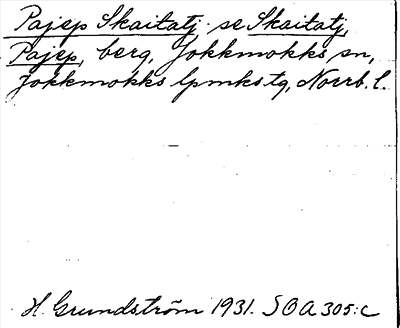 Pajep Skaitatj se Skaitatj,
Pajep, berg, Jokkmokks sn,
Jokkmokks lpmkstg, Norrb. l.
H. Grundström 1931. SOA 305:c